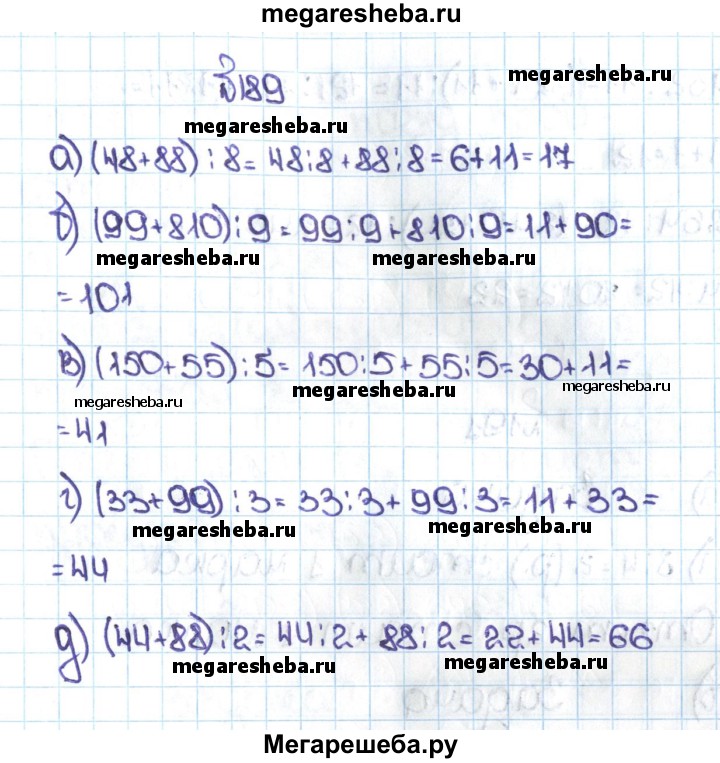 megaresheba.ru
№189
megaresheba.ru
megaresheba.ru
а) (48+88) : 8 = 48:8 + 88:8 = 6+11 = 17
б) (99+810) : 9 = 99:9 + 810:9 = 11 + 90 =
megaresheba.ru megaresheba.ru
= 101
в) (150+55) : 5 = 150:5 + 55:5 = 30+11 =
megaresheba.ru megaresheba.ru megaresheba.ru
= 41
г) (33+99) : 3 = 33:3 + 99:3 = 11 + 33 =
megaresheba.ru megaresheba.ru
= 44
д) (44+88) : 2 = 44:2 + 88:2 = 22 + 44 = 66
megaresheba.ru megaresheba.ru
Мегарешеба.ру